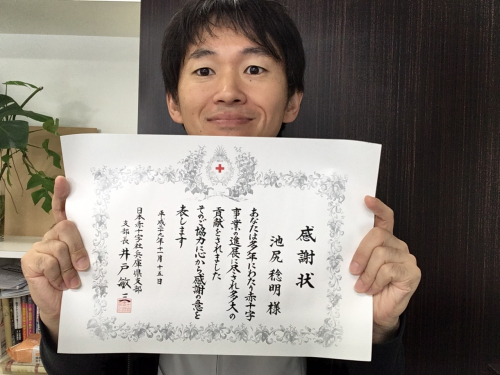 感謝状
池尻 稔明 様
あなたは多年にわたり赤十字
事業の進展に尽くされ多大の
貢献をされました
そのご協力に心から感謝の意を
表します
平成二十九年十一月十五日
日本赤十字社兵庫県支部
支部長 井戸敏三